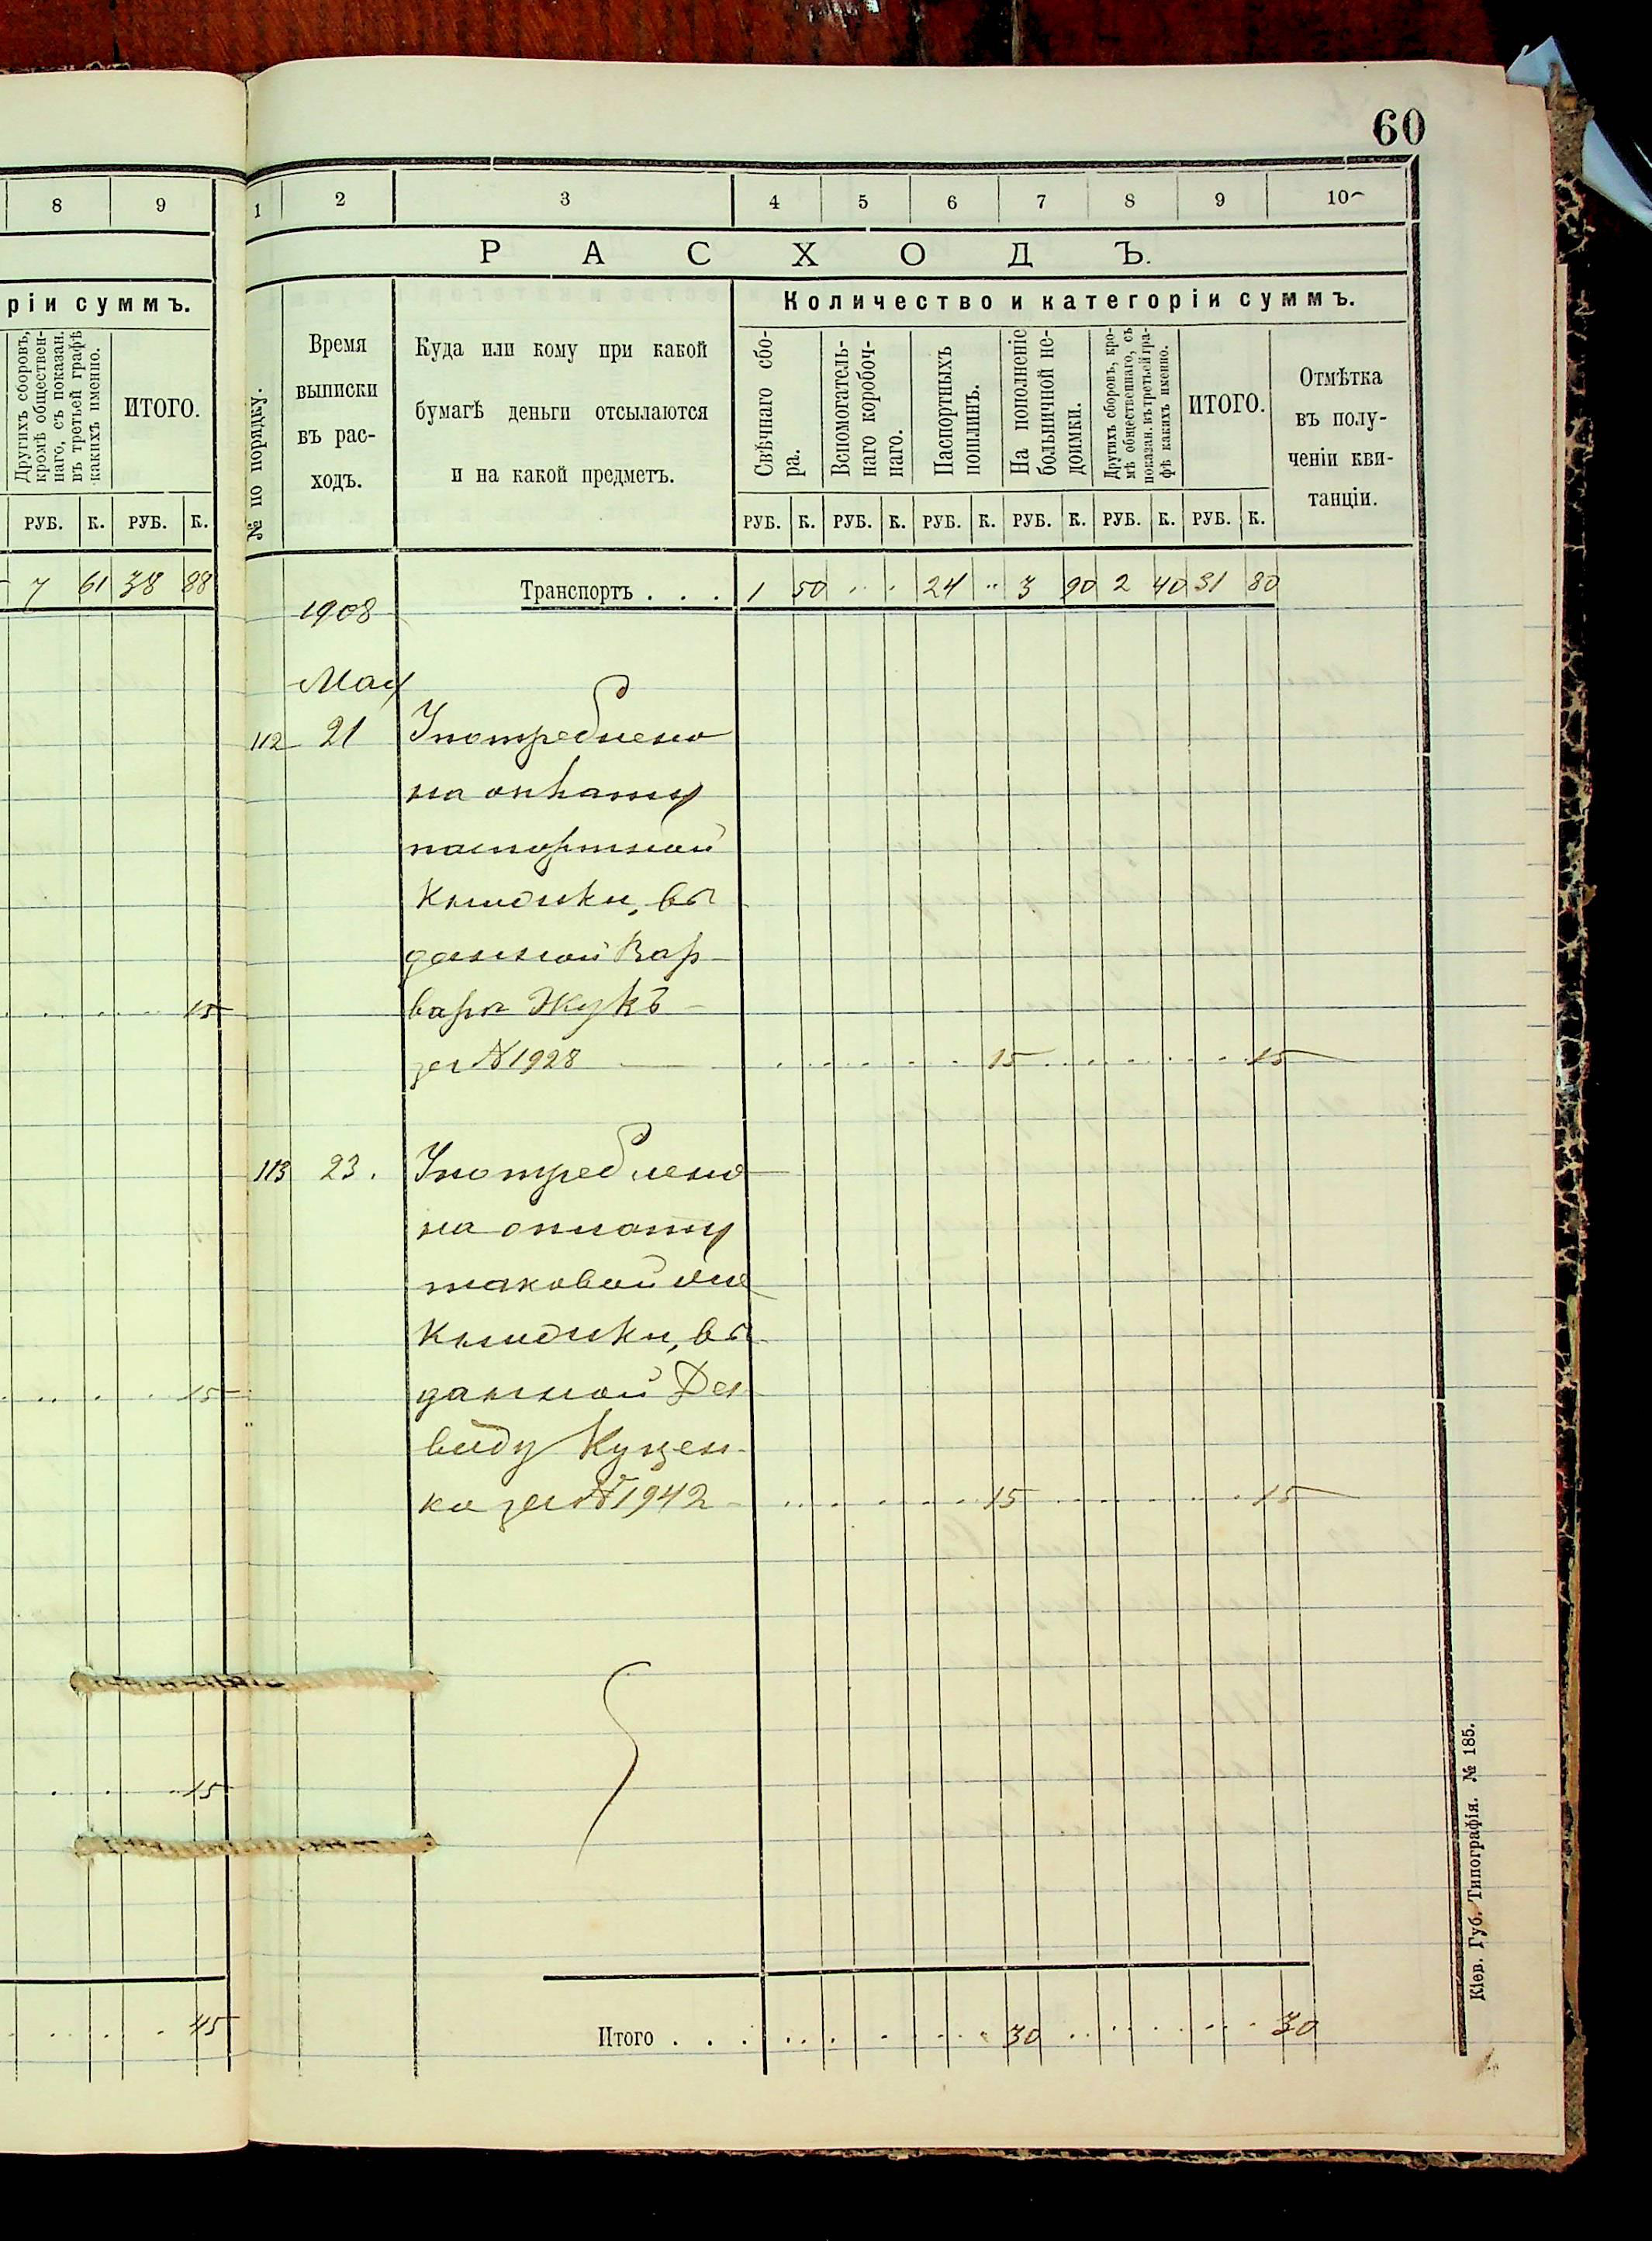 60
8 9
рiи суммъ.
Другихъ сборовъ,
кромѣ обществен-
наго, съ показан.
въ третьей графѣ
какихъ именно.
ИТОГО.
РУБ. К. РУБ. К.
7 61 38 88
15
15
15
45
1 2 3 4 5 6 7 8 9 10
РАСХОДЪ.
№ по порядку.
Время
выписки
въ рас-
ходъ.
Куда или кому при какой
бумагѣ деньги отсылаются
и на какой предметъ.
Количество и категорiи суммъ.
Свѣчнаго сбо-
ра.
Вспомогатель-
наго коробоч-
наго.
Паспортныхъ
пошлинъ.
На пополненiе
больничной не-
доимки.
Другихъ сборовъ, кро-
мѣ общественнаго, съ
показан. въ третьей гра-
фѣ какихъ именно.
ИТОГО.
Отмѣтка
въ полу-
ченiи кви-
танцiи.
РУБ. К. РУБ. К. РУБ. К. РУБ. К. РУБ. К. РУБ. К.
Транспортъ . . . 1 50 . . . 24 .. 3 90 2 40 31 80
1908
Мая
112 21 Употреблено
на оплату
паспортной
книжки, вы
данной Вар-
варѣ Жукъ
за № 1928 15 15
113 23. Употреблено
на оплату
таковой же
книжки, вы
данной Да
виду Куцен-
ко за № 1942 15 15
Итого . . . 30 30
Кiев. Губ. Типографiя. № 185.